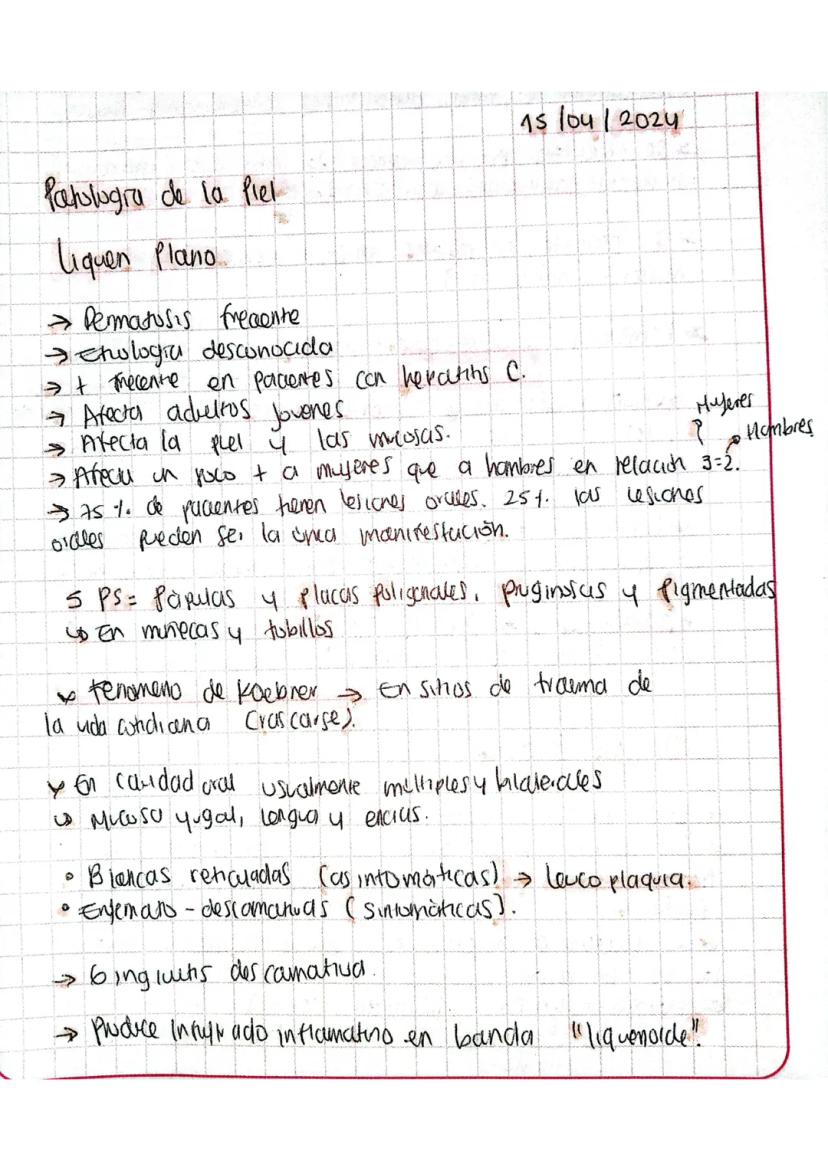 15/04/2024
Patología de la Piel
Liquen Plano
→ Dermatosis frecuente
→ Etiología desconocida
→ + frecuente en pacientes con hepatitis C.
→ Afecta adultos jovenes
→ Afecta la piel y las mucosas.
Mujeres
Hombres
→ Afecta un poco + a mujeres que a hombres en relación 3=2.
→ 75 % de pacientes tienen lesiones orales. 25% las lesiones
orales pueden ser la única manifestación.
5 PS= Pápulas y placas poligonales, pruginosas y pigmentadas
↳ En muñecas y tobillos
↳ Fenomeno de Koebner → En sitios de trauma de
la vida cotidiana (rascarse).
↳ En cavidad oral usualmente multiples y bilaterales
↳ Mucosa yugal, lengua y encias.
• Blancas reticuladas (asintomáticas) → leucoplaquia.
• Eritemato-descamativas (sintomáticas).
→ Gingivitis descamativa.
→ Produce infiltrado inflamatorio en banda "liquenoide".